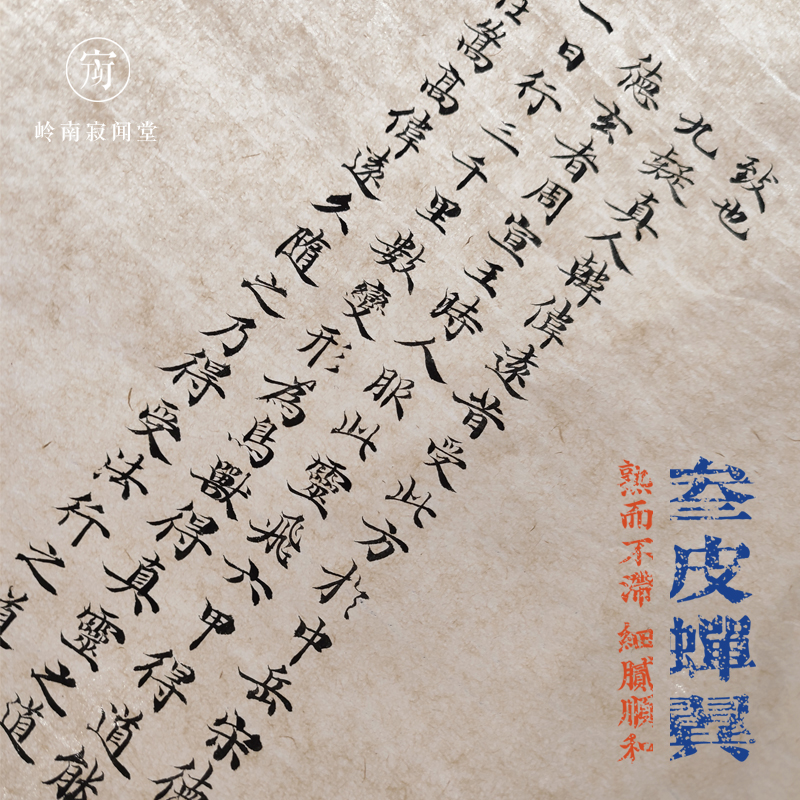 岭南寂闻堂
致也
九疑真人韓偉遠昔受此方於中岳宋德
德玄者周宣王時人服此靈飛六甲得道能
一日行三千里數變形為鳥獸得真靈之道
在嵩高偉遠久隨之乃得受法行之道
叁皮蟬翼
熟而不滯 細膩順和